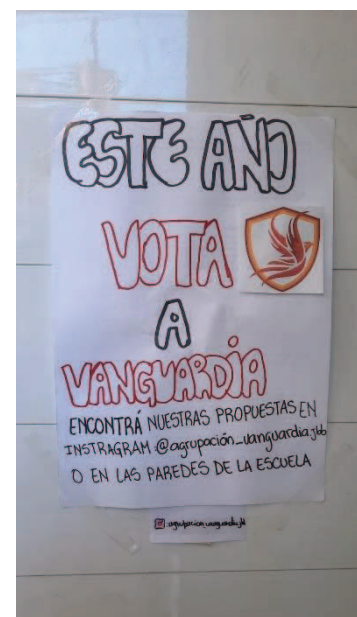 ESTE AÑO
VOTA
A
VANGUARDIA
ENCONTRÁ NUESTRAS PROPUESTAS EN
INSTRAGRAM: @agrupación_vanguardiajbb
O EN LAS PAREDES DE LA ESCUELA